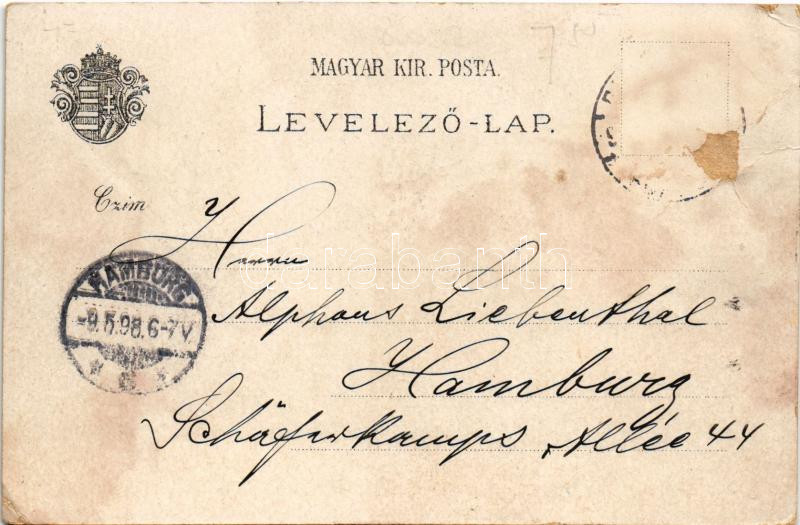 MAGYAR KIR. POSTA.
LEVELEZŐ-LAP.
Czim
Herrn
Alphons Liebenthal
Hamburg
Schäferkamps Allée 44
HAMBURG
-9.5.98.6-7V
darabanth